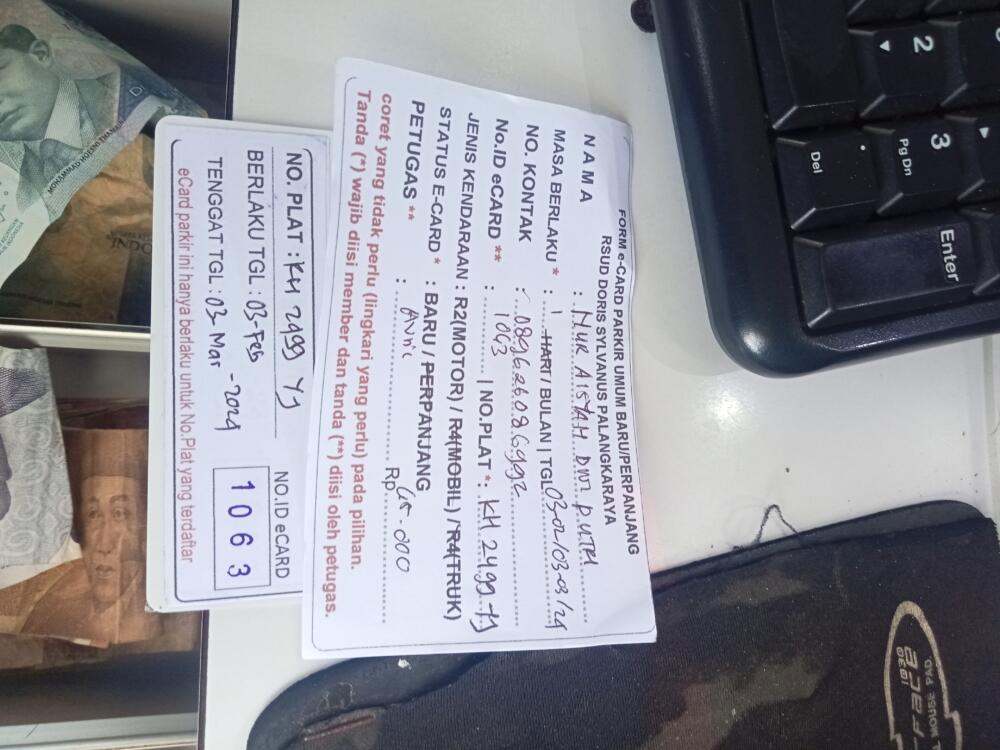 FORM e-CARD PARKIR UMUM BARU/PERPANJANG
RSUD DORIS SYLVANUS PALANGKARAYA
N A M A : NUR AISYAH DWI PUTRI
MASA BERLAKU * : 1 HARI / BULAN | TGL 03-02/03-03/24
NO. KONTAK : 089626086992
No.ID eCARD ** : 1063 | NO.PLAT *: KH 2499 YJ
JENIS KENDARAAN : R2(MOTOR) / R4(MOBIL) / R4(TRUK)
STATUS E-CARD * : BARU / PERPANJANG
PETUGAS ** : Rp 45.000
coret yang tidak perlu (lingkari yang perlu) pada pilihan.
Tanda (*) wajib diisi member dan tanda (**) diisi oleh petugas.
NO. PLAT : KH 2499 YJ
BERLAKU TGL : 03-Feb
TENGGAT TGL : 03-Mar -2024
NO.ID eCARD
1063
eCard parkir ini hanya berlaku untuk No.Plat yang terdaftar
2
3
Pg Dn
.
Del
Enter
MOUSE PAD